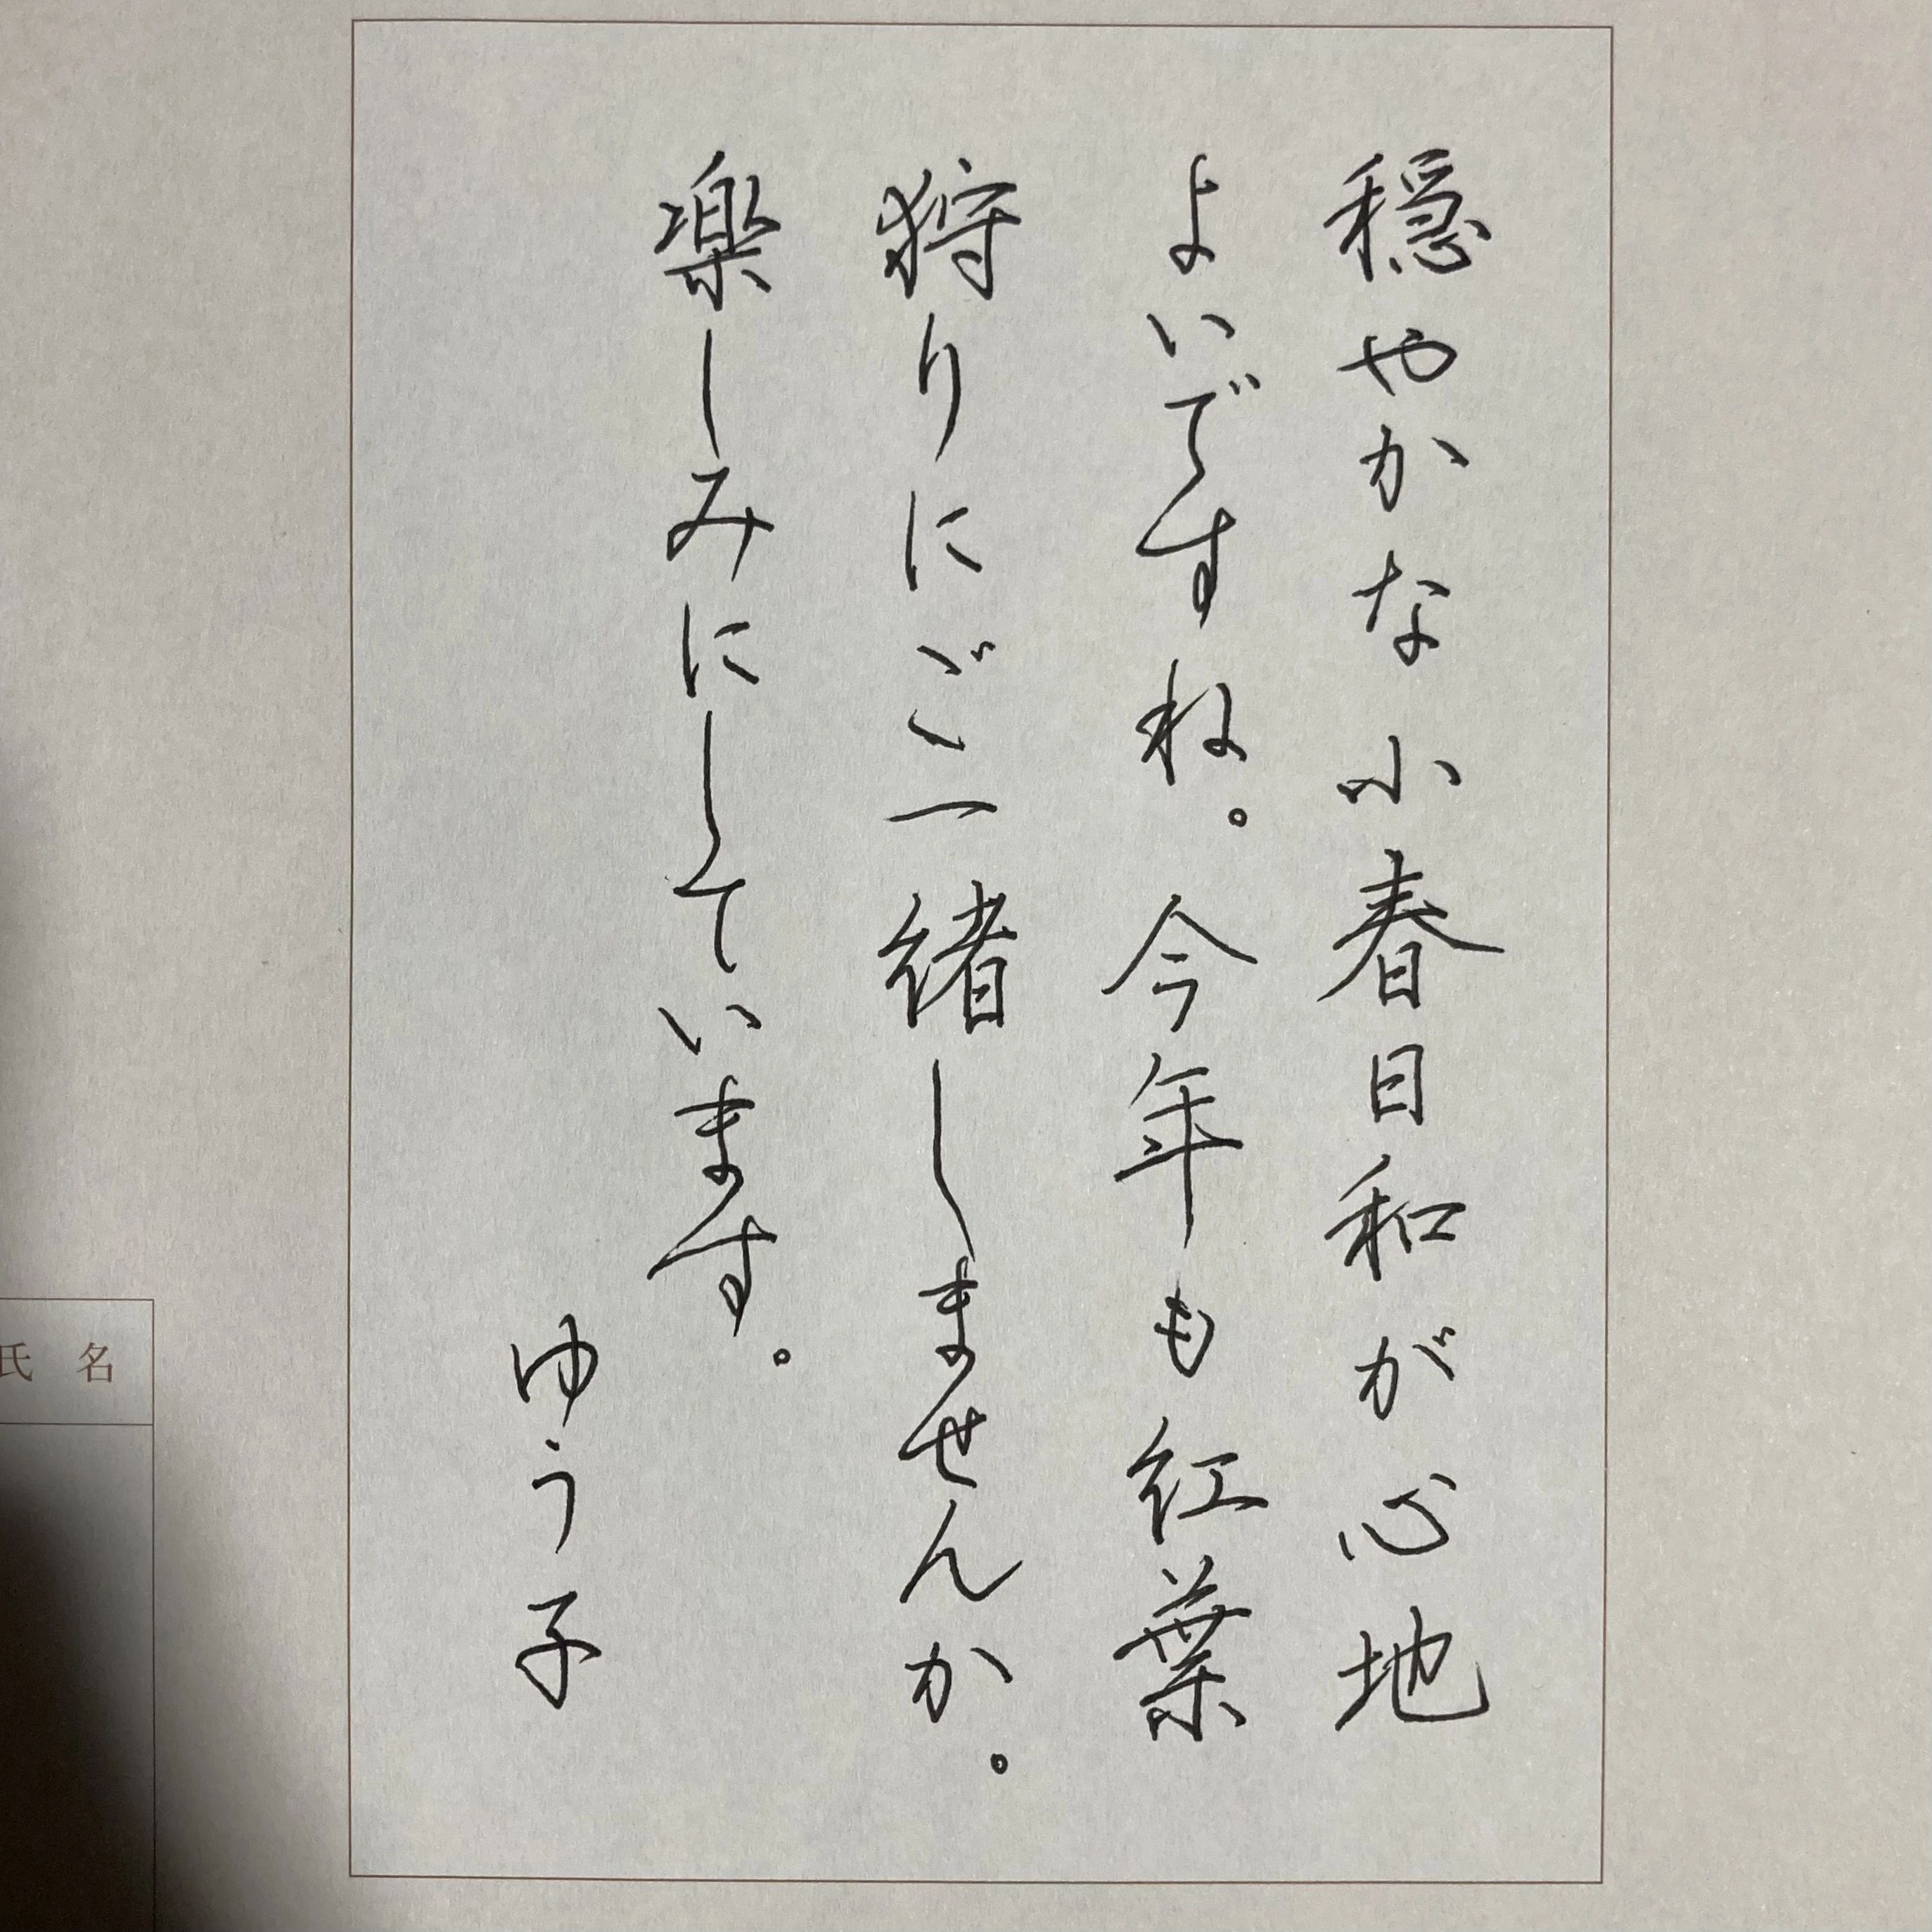 穏やかな小春日和が心地
よいですね。今年も紅葉
狩りにご一緒しませんか。
楽しみにしています。
ゆう子
氏名